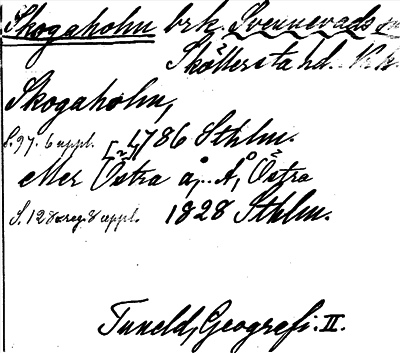 Skogaholm brk. Svennevads
Sköllersta hd.
Skogaholm,
S. 97. 6 uppl. 1786 Sthlm.
eller Östra å, Å, Östra
S. 128 8 uppl. 1828 Sthlm.
Tuneld, Geografi. II.